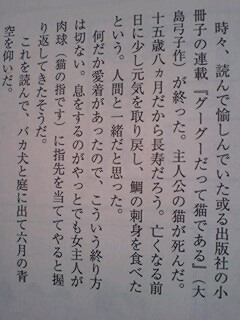 時々、読んで愉しんでいた或る出版社の小
冊子の連載『グーグーだって猫である』(大
島弓子作)が終った。主人公の猫が死んだ。
十五歳八ヵ月だから長寿だろう。亡くなる前
日に少し元気を取り戻し、鯛の刺身を食べた
という。人間と一緒だと思った。
何だか愛着があったので、こういう終り方
は切ない。息をするのがやっとでも女主人が
肉球(猫の指です)に指先を当ててやると握
り返してきたそうだ。
これを読んで、バカ犬と庭に出て六月の青
空を仰いだ。